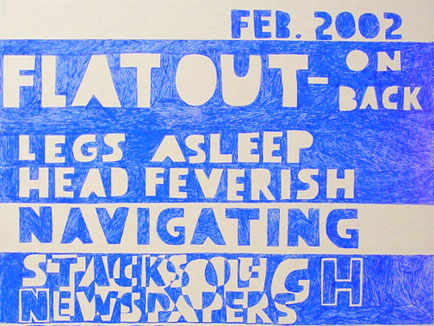 FEB. 2002
FLAT OUT- ON
BACK
LEGS ASLEEP
HEAD FEVERISH
NAVIGATING
STACKS
NEWSPAPERS